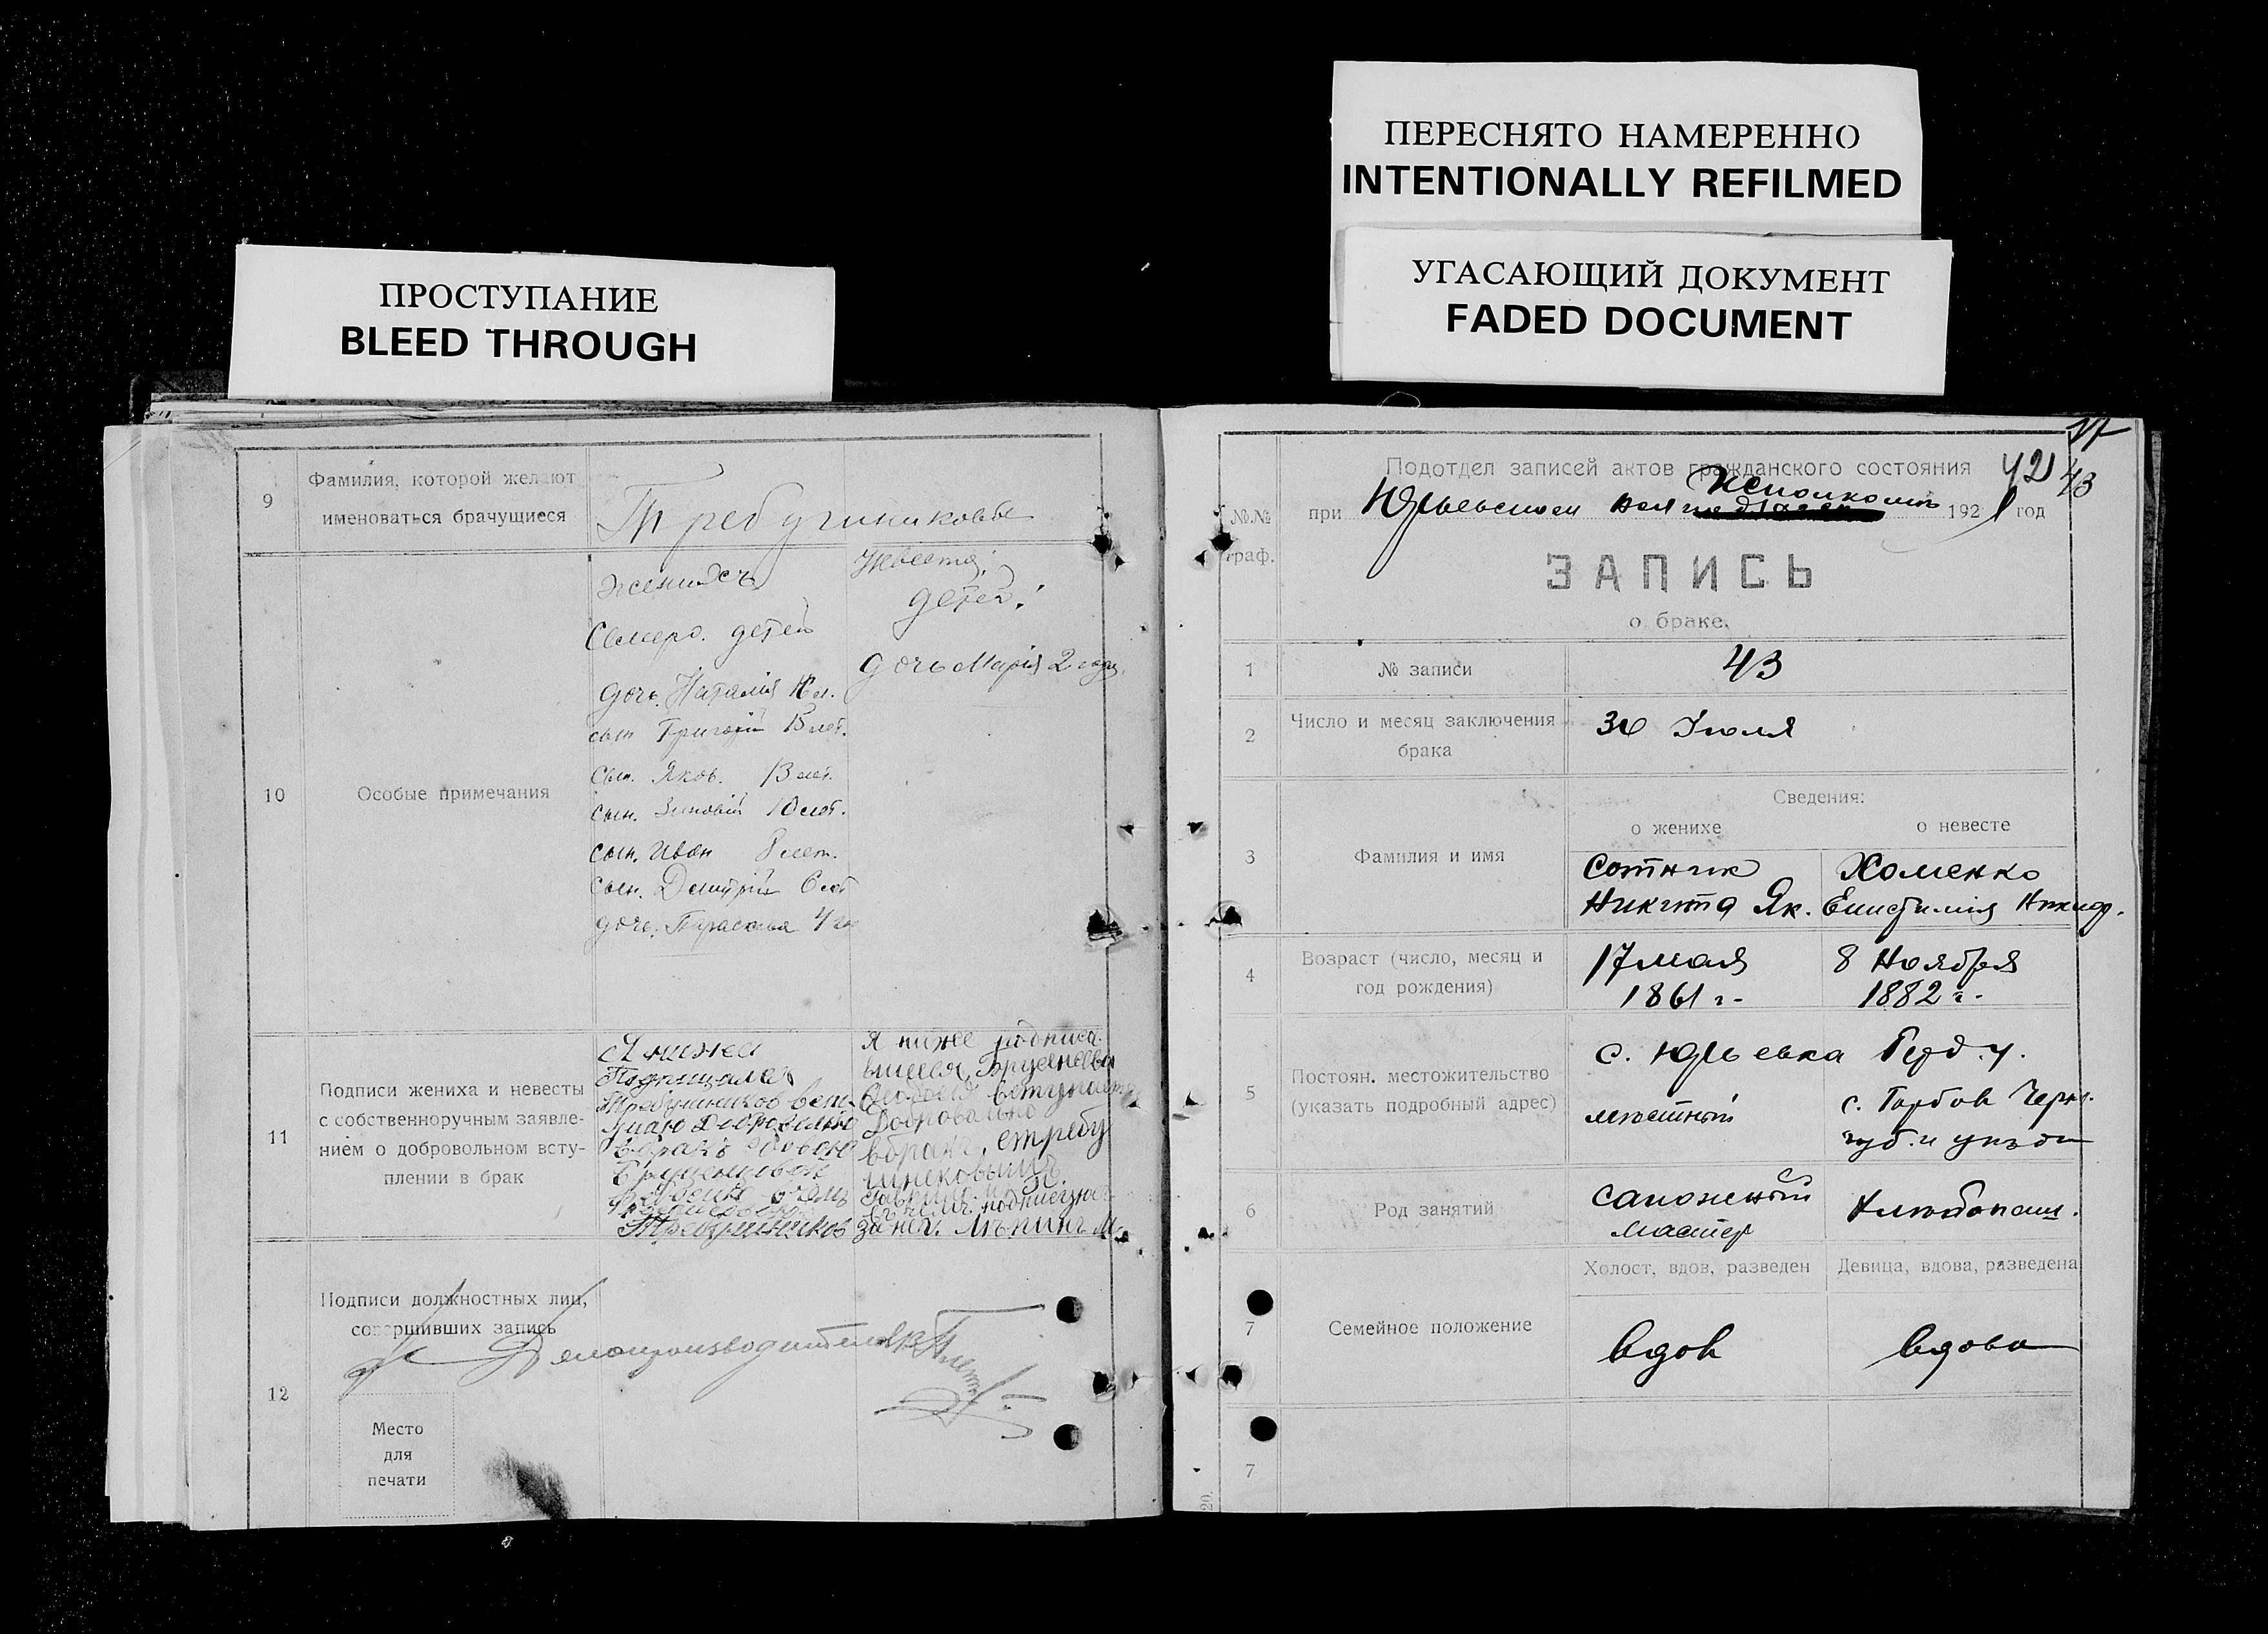 ПЕРЕСНЯТО НАМЕРЕННО
INTENTIONALLY REFILMED
УГАСАЮЩИЙ ДОКУМЕНТ
FADED DOCUMENT
ПРОСТУПАНИЕ
BLEED THROUGH
9
Фамилия, которой желают
именоваться брачущиеся
Требушниковы
10
Особые примечания
Жених
Семеро детей
дочь Наталия
сын Григорий 15 лет.
сын. Яков. 13 лет.
сын. Зиновий 10 лет.
сын. Иван 8 лет.
сын. Дмитрий 6 лет
дочь. Параскева 4 го
Невеста:
детей:
дочь Мария 2 года.
11
Подписи жениха и невесты
с собственноручным заявле-
нием о добровольном всту-
плении в брак
Я ниже
Требушников
Я ниже подписа
вступаю
Добровольно
в брак
12
Подписи должностных лиц,
совершивших запись
Делопроизводитель
Место
для
печати
№№
граф.
Подотдел записей актов гражданского состояния
42
43
при Юрьевском Исполкоме 1921 год
ЗАПИСЬ
о браке.
1
№ записи
43
2
Число и месяц заключения
брака
30 Июля
3
Фамилия и имя
Сведения:
о женихе
о невесте
Сотник
Никита Як.
Хоменко
4
Возраст (число, месяц и
год рождения)
17 мая
1861 г.
8 Ноября
1882 г.
5
Постоян. местожительство
(указать подробный адрес)
с. Юрьевка Берд. у.
местный
с. Горбов Черн.
губ. и уезда
6
Род занятий
сапожный
мастер
хлебопаш.
7
Семейное положение
Холост, вдов, разведен
Девица, вдова, разведена
вдов
вдова
7
20.